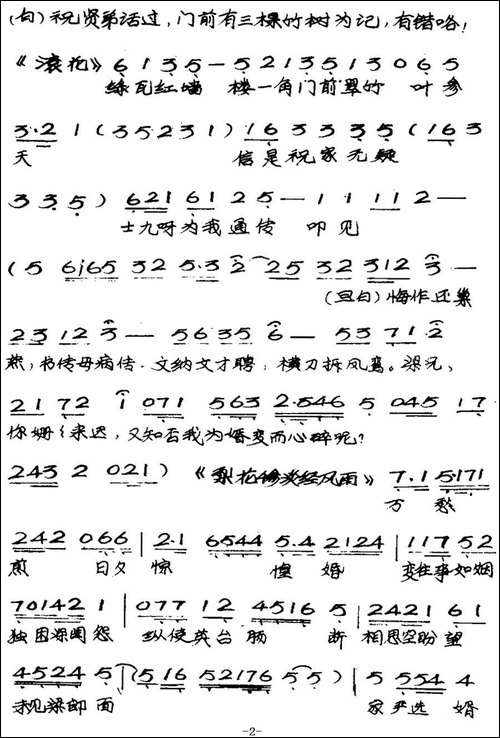 (白) 祝贤弟话过，门前有三棵竹树为记，有错咯！
《滚花》6 1 3 5 — 5 2 1 3 5 1 3 0 6 5
绿瓦红墙 楼一角门前翠竹 叶参
3·2 1 (3 5 2 3 1) 16 3 3 3 5 (16 3
天 信是祝家无疑
3 3 5) 621 61 2 5 — 1 1 11 2 —
士九呀为我通传 叩见
(5 6i65 32 5·3 2 25 32 312 3 —
(旦白) 悔作还巢
23 12 3 — 56 35 6 — 53 71 2
燕，书传母病传．文纳文才聘，横刀拆凤鸾。梁兄、
21 72 i 071 563 2·546 5 045 17
你姗姗来迟，又知否我为婚变而心碎呢？
243 2 021) 《梨花惨淡经风雨》 7·1 5171
万 愁
242 066 | 2·1 6544 5·4 2124 | 117 52
煎 日夕 惊 惶 婚 变往事如烟
70142 1 | 077 12 4516 5 | 2421 61
独困深闺怨 纵使英台肠 断 相思空盼望
4524 5 (516 52176 5 5) | 5 554 4
未见梁郎面 家严选 婿
-2-